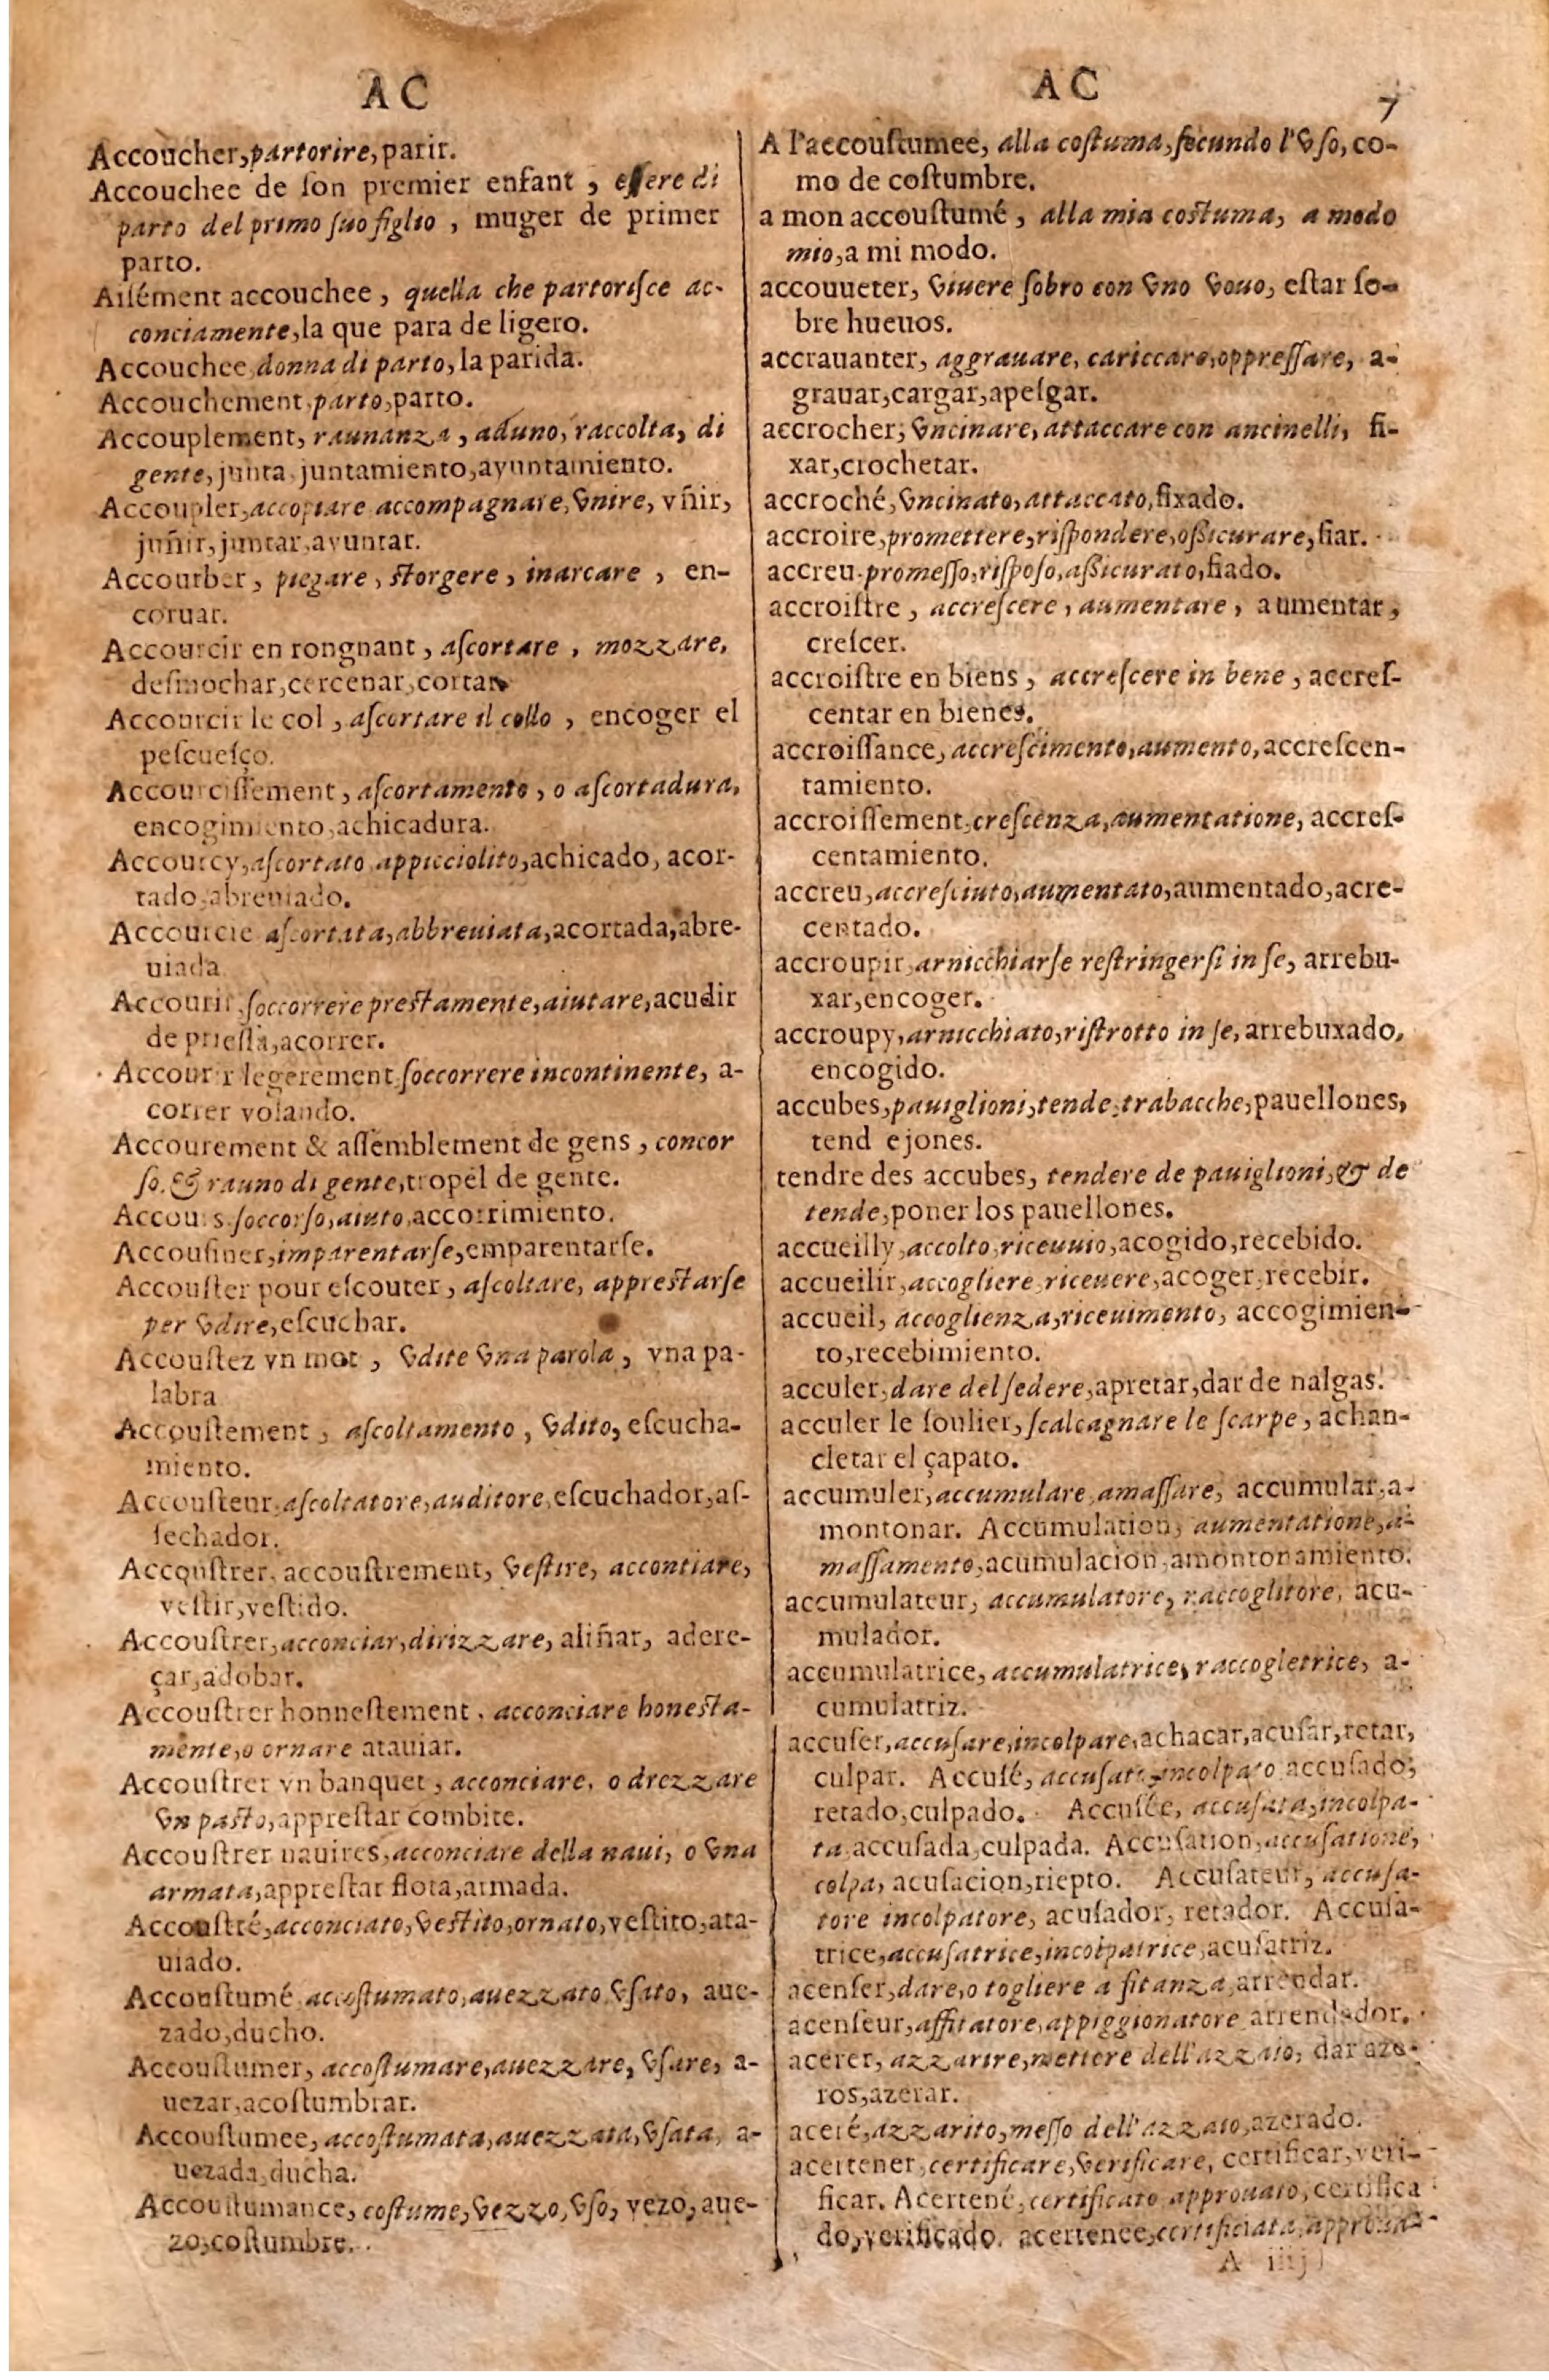 A C
Accoucher, partorire, parir.
Accouchee de ſon premier enfant, eſſere di
parto del primo ſuo figlio, muger de primer
parto.
Aiſément accouchee, quella che partoriſce ac-
conciamente, la que para de ligero.
Accouchee, donna di parto, la parida.
Accouchement, parto, parto.
Accouplement, raunanza, aduno, raccolta, di
gente, junta, juntamiento, ayuntamiento.
Accoupler, accopiare accompagnare, vnire, vñir,
juñir, juntar, ayuntar.
Accourber, piegare, storgere, inarcare, en-
coruar.
Accourcir en rongnant, aſcortare, mozzare,
deſmochar, cercenar, cortar
Accourcir le col, aſcortare il collo, encoger el
peſcueſço.
Accourciſſement, aſcortamento, o aſcortadura,
encogimiento, achicadura.
Accourcy, aſcortato appicciolito, achicado, acor-
tado, abreuiado.
Accourcie aſcortata, abbreuiata, acortada, abre-
uiada
Accourir, ſoccorrere prestamente, aiutare, acudir
de prieſſa, acorrer.
Accourir legerement, ſoccorrere incontinente, a-
correr volando.
Accourement & aſſemblement de gens, concor
ſo, & rauno di gente, tropel de gente.
Accours, ſoccorſo, aiuto, accorrimiento.
Accouſiner, imparentarſe, emparentarſe.
Accouſter pour eſcouter, aſcoltare, apprestarſe
per vdire, eſcuchar.
Accouſtez vn mot, vdite vna parola, vna pa-
labra
Accouſtement, aſcoltamento, vdito, eſcucha-
miento.
Accouſteur, aſcoltatore, auditore, eſcuchador, aſ-
ſechador.
Accouſtrer, accouſtrement, veſtire, accontiare,
veſtir, veſtido.
Accouſtrer, acconciar, dirizzare, aliñar, adere-
çar, adobar.
Accouſtrer honneſtement, acconciare honesta-
mente, o ornare atauiar.
Accouſtrer vn banquet, acconciare, o drezzare
vn pasto, appreſtar combite.
Accouſtrer nauires, acconciare della naui, o vna
armata, appreſtar flota, armada.
Accouſtré, acconciato, vestito, ornato, veſtito, ata-
uiado.
Accouſtumé, accoſtumato, auezzato vſato, aue-
zado, ducho.
Accouſtumer, accoſtumare, auezzare, vſare, a-
uezar, acoſtumbrar.
Accouſtumee, accoſtumata, auezzata, vſata, a-
uezada, ducha.
Accouſtumance, coſtume, vezzo, vſo, vezo, aue-
zo, coſtumbre.
A C 7
A l'accouſtumee, alla coſtuma, ſecundo l'vſo, co-
mo de coſtumbre.
a mon accouſtumé, alla mia costuma, a modo
mio, a mi modo.
accouueter, viuere ſobro con vno vouo, eſtar ſo-
bre hueuos.
accrauanter, aggrauare, cariccare, oppreſſare, a-
grauar, cargar, apeſgar.
accrocher, vncinare, attaccare con ancinelli, fi-
xar, crochetar.
accroché, vncinato, attaccato, fixado.
accroire, promettere, riſpondere, oſſicurare, fiar.
accreu, promeſſo, riſpoſo, aſſicurato, fiado.
accroiſtre, accreſcere, aumentare, aumentar,
creſcer.
accroiſtre en biens, accreſcere in bene, accreſ-
centar en bienes.
accroiſſance, accreſcimento, aumento, accreſcen-
tamiento.
accroiſſement, creſcenza, aumentatione, accreſ-
centamiento.
accreu, accreſciuto, aumentato, aumentado, acre-
centado.
accroupir, arnicchiarſe reſtringerſi in ſe, arrebu-
xar, encoger.
accroupy, arnicchiato, riſtrotto in ſe, arrebuxado,
encogido.
accubes, pauiglioni, tende, trabacche, pauellones,
tend ejones.
tendre des accubes, tendere de pauiglioni, & de
tende, poner los pauellones.
accueilly, accolto, riceuuto, acogido, recebido.
accueilir, accogliere, riceuere, acoger, recebir.
accueil, accoglienza, riceuimento, accogimien-
to, recebimiento.
acculer, dare del ſedere, apretar, dar de nalgas.
acculer le ſoulier, ſcalcagnare le ſcarpe, achan-
cletar el çapato.
accumuler, accumulare, amaſſare, accumular, a-
montonar. Accumulation, aumentatione, a-
maſſamento, acumulacion, amontonamiento.
accumulateur, accumulatore, raccoglitore, acu-
mulador.
accumulatrice, accumulatrice, raccogletrice, a-
cumulatriz.
accuſer, accuſare, incolpare, achacar, acuſar, retar,
culpar. Accuſé, accuſato, incolpato accuſado,
retado, culpado. Accuſée, accuſata, incolpa-
ta accuſada, culpada. Accuſation, accuſatione,
colpa, acuſacion, riepto. Accuſateur, accuſa-
tore incolpatore, acuſador, retador. Accuſa-
trice, accuſatrice, incolpatrice, acuſatriz.
acenſer, dare, o togliere a fitanza, arrendar.
acenſeur, affitatore, appiggionatore arrendador.
acerer, azzarire, mettere dell'azzaio, dar aze-
ros, azerar.
aceré, azzarito, meſſo dell'azzaio, azerado.
acertener, certificare, verificare, certificar, veri-
ficar. Acertené, certificato approuato, certifica
do, verificado. acertenee, certificiata, approua-
A iiij